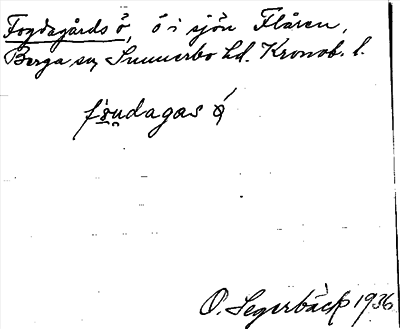 Fogdagårds ö, ö i sjön Flåren,
Berga sn, Sunnerbo hd. Kronob. l.
foudagas ǿ
O. Segerbäck 1936